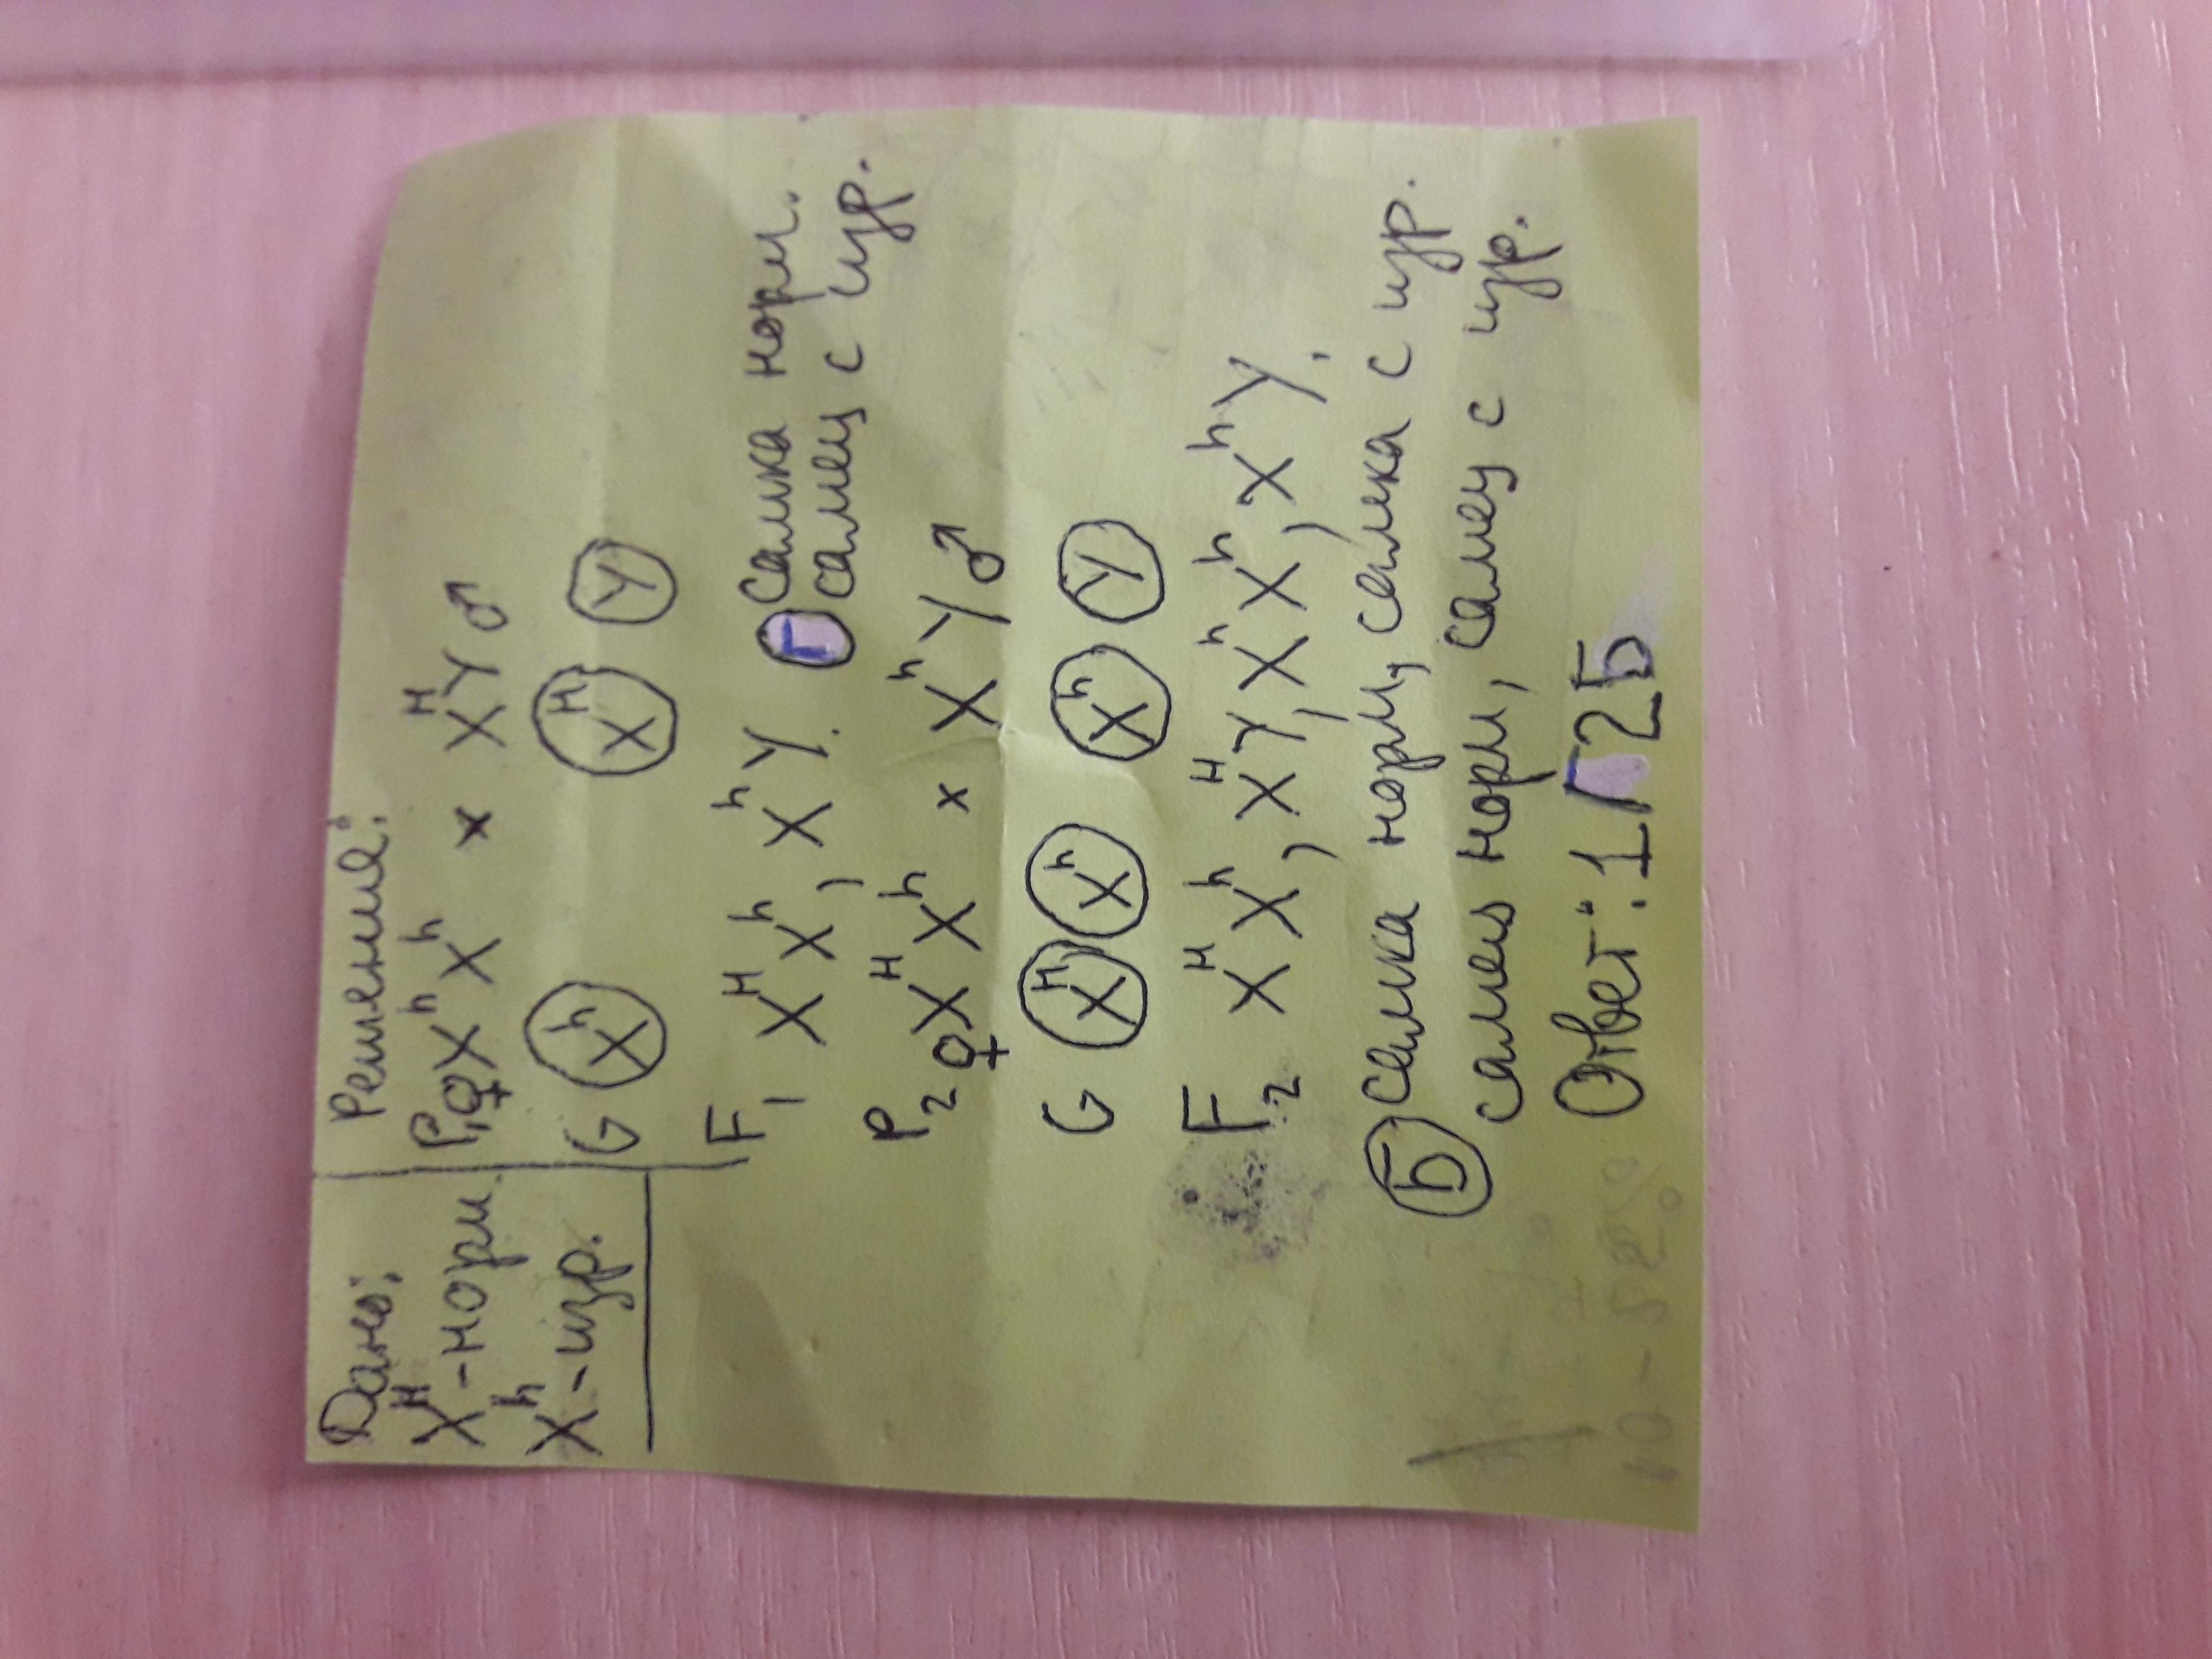 Дано:
X^H - норм.
X^h - изр.
Решения:
P₁ ♀ X^h X^h × X^H Y ♂
G (X^h) (X^H) (Y)
F₁ X^H X^h, X^h Y.
Г самка норм.
самец с изр.
P₂ ♀ X^H X^h × X^h Y ♂
G (X^H) (X^h) (X^h) (Y)
F₂ X^H X^h, X^H Y, X^h X^h, X^h Y.
Б самка норм, самка с изр.
самец норм, самец с изр.
Ответ: 1Г2Б